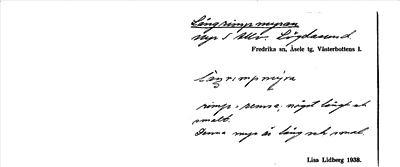 Långrimpmyran
myr S Utkr. Lögdasund
Fredrika sn, Åsele tg, Västerbottens l.
långrimpmýra
rimp = remsa, något långt och
smalt.
Denna myr är lång och smal.
Lisa Lidberg 1938.